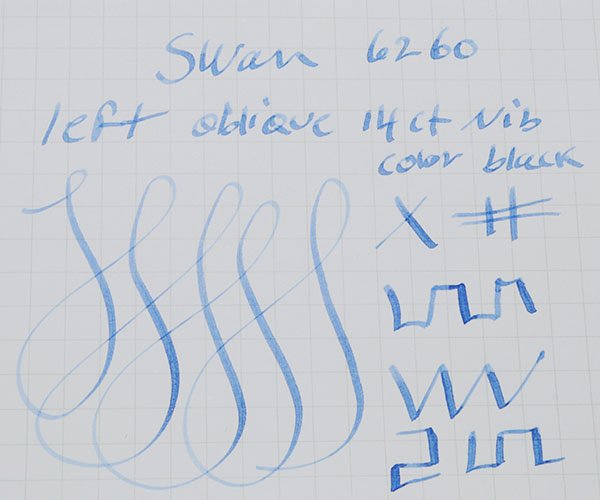 Swan 6260
left oblique 14ct Nib
color black